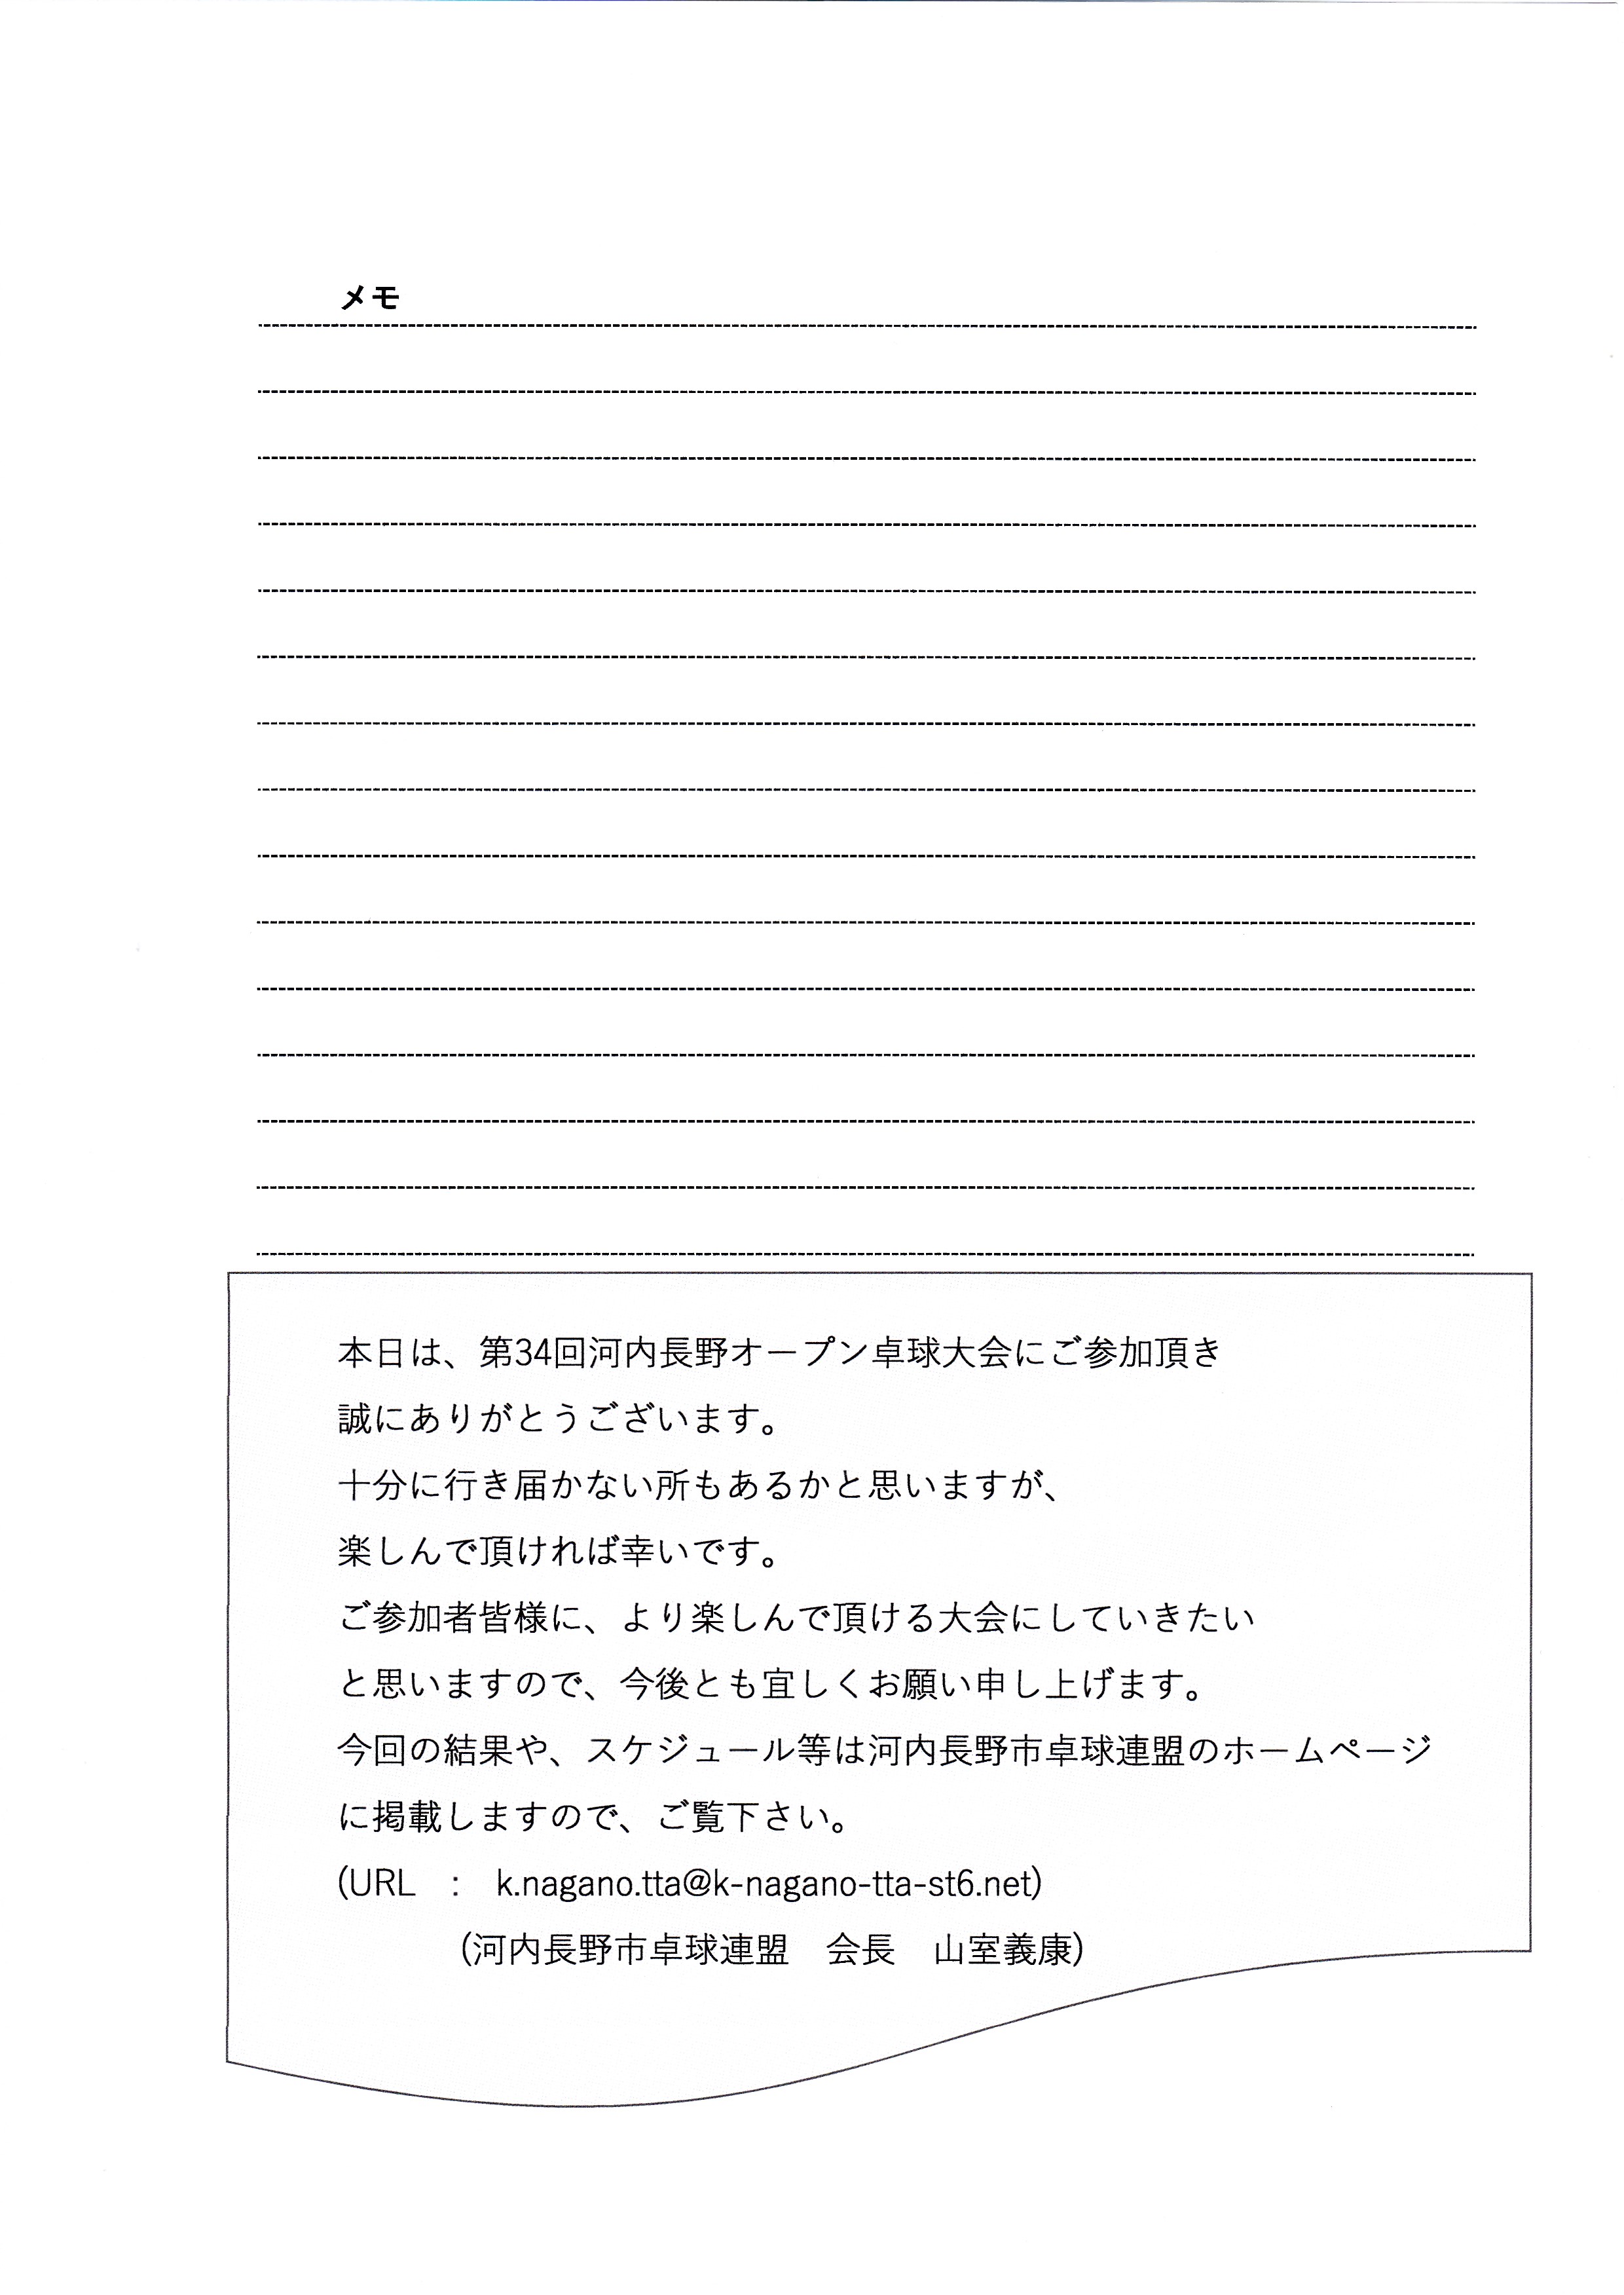 メモ
本日は、第34回河内長野オープン卓球大会にご参加頂き
誠にありがとうございます。
十分に行き届かない所もあるかと思いますが、
楽しんで頂ければ幸いです。
ご参加者皆様に、より楽しんで頂ける大会にしていきたい
と思いますので、今後とも宜しくお願い申し上げます。
今回の結果や、スケジュール等は河内長野市卓球連盟のホームページ
に掲載しますので、ご覧下さい。
(URL　:　k.nagano.tta@k-nagano-tta-st6.net)
(河内長野市卓球連盟　会長　山室義康)